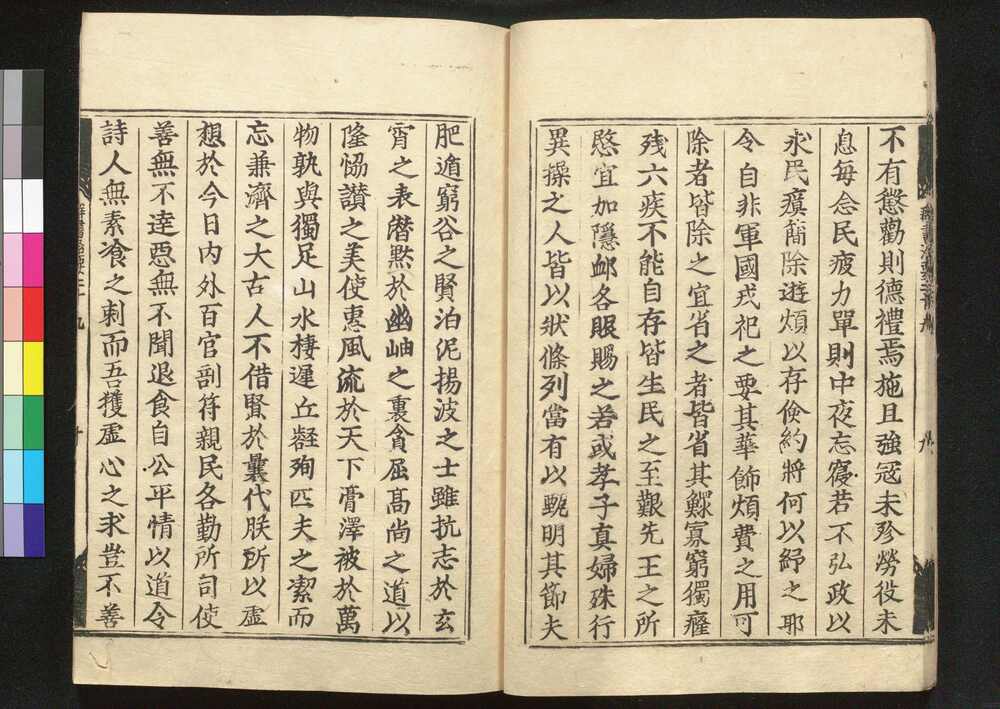 不有懲勸則德禮焉施且強冦未殄勞役未
息每念民疲力單則中夜忘寑若不弘政以
求民瘼蕳除遊煩以存儉約將何以紓之耶
令自非軍國戎祀之要其華飾煩費之用可
除者皆除之宜省之者皆省其鰥寡窮獨癃
残六疾不能自存皆生民之至艱先王之所
愍宜加隱䘏各賑賜之若或孝子真婦殊行
異操之人皆以狀條列當有以甄明其節夫
肥遁窮谷之賢泊泥揚波之士雖抗志於玄
霄之表潛默於幽岫之裏貪屈髙尚之道以
隆恊讃之美使惠風流於天下膏澤被於萬
物孰與獨足山水棲遲丘壑殉匹夫之潔而
忘兼濟之大古人不借賢於曩代朕所以虚
想於今日内外百官剖符親民各勤所司使
善無不達惡無不聞退食自公平情以道令
詩人無素飡之刺而吾獲虚心之求豈不善